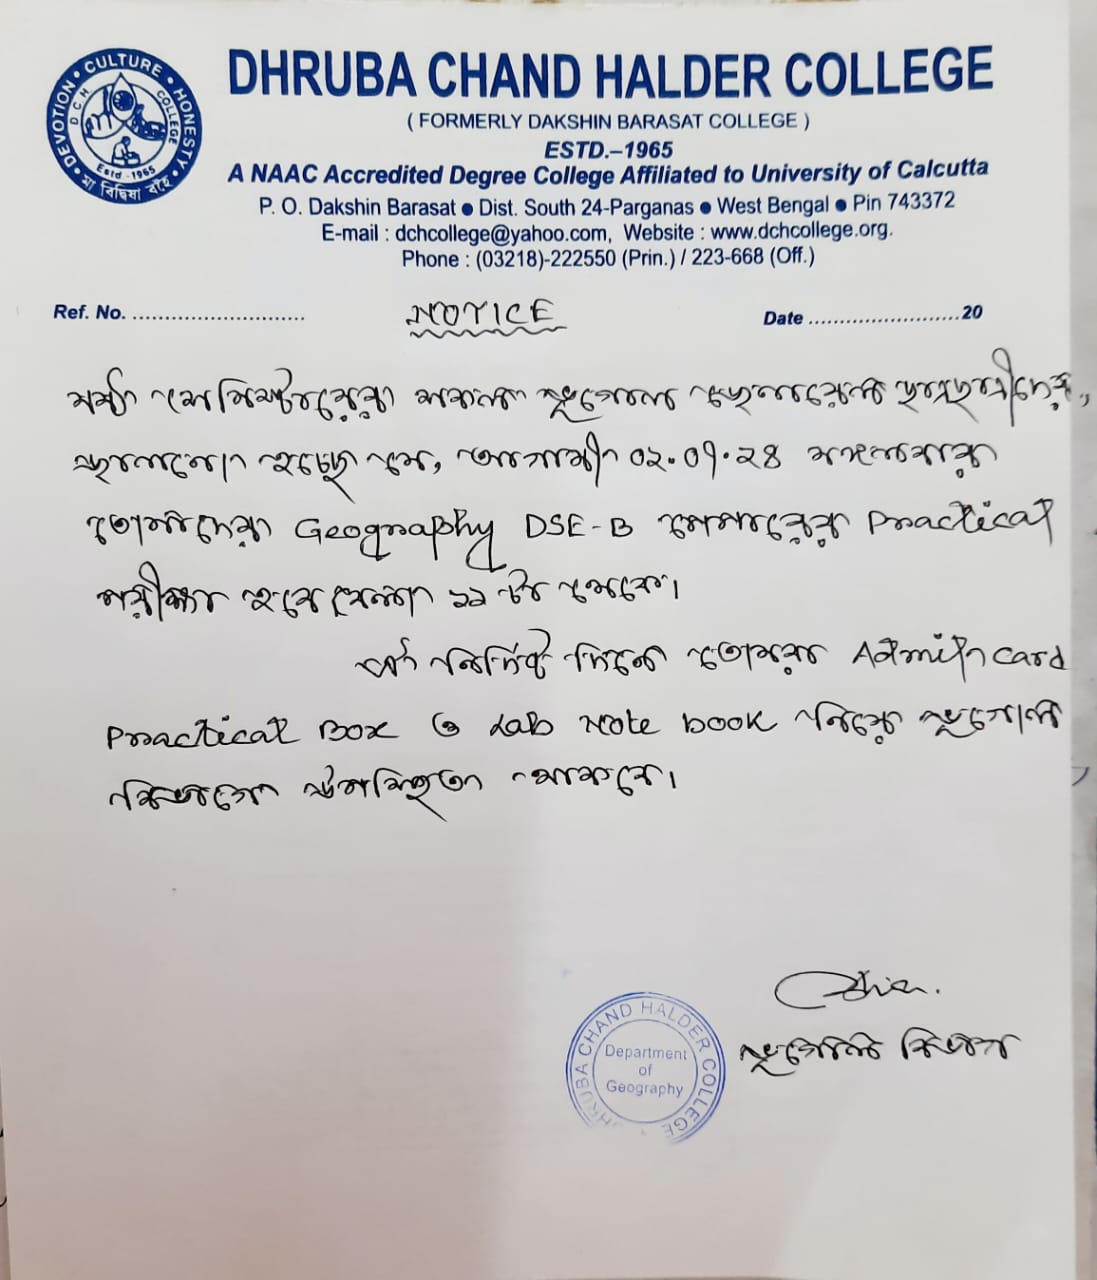 DEVOTION • CULTURE • HONESTY
D C H COLLEGE
Estd - 1965
মা বিদ্বিষা বহৈ
DHRUBA CHAND HALDER COLLEGE
( FORMERLY DAKSHIN BARASAT COLLEGE )
ESTD.–1965
A NAAC Accredited Degree College Affiliated to University of Calcutta
P. O. Dakshin Barasat ● Dist. South 24-Parganas ● West Bengal ● Pin 743372
E-mail : dchcollege@yahoo.com, Website : www.dchcollege.org.
Phone : (03218)-222550 (Prin.) / 223-668 (Off.)
Ref. No. ........................... NOTICE Date ........................20
ষষ্ঠ সেমিস্টারের সকল ভূগোল জেনারেল ছাত্রছাত্রীদের,
জানানো হচ্ছে যে, আগামী ০২.০৭.২৪ মঙ্গলবার
তোমাদের Geography DSE-B পেপারের Practical
পরীক্ষা হবে বেলা ১১ টা থেকে।
ঐ নির্দিষ্ট দিনে তোমরা Admit card
Practical Box ও Lab Note book নিয়ে ভূগোল
বিভাগে উপস্থিত থাকবে।
ভূগোল বিভাগ
DHRUBA CHAND HALDER COLLEGE
Department
of
Geography